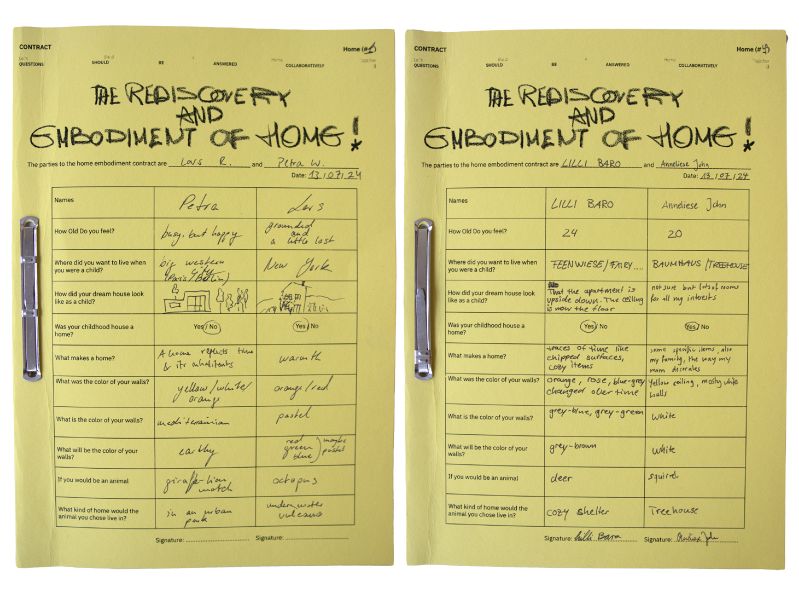 CONTRACT
Home (#1)
QUESTIONS SHOULD BE ANSWERED COLLABORATIVELY
THE REDISCOVERY
AND
EMBODIMENT OF HOME!
The parties to the home embodiment contract are Lars R. and Petra W.
Date: 13/07/24
Names
Petra
Lars
How Old Do you feel?
busy, but happy
grounded
and
a little lost
Where did you want to live when
you were a child?
big western
city
(Paris/Berlin)
New York
How did your dream house look
like as a child?
Was your childhood house a
home?
Yes/No
Yes/No
What makes a home?
A home reflects time
& its inhabitants
warmth
What was the color of your walls?
yellow/white/
orange
orange/red
What is the color of your walls?
mediterranian
pastel
What will be the color of your
walls?
earthy
red
green
blue
maybe
pastel
If you would be an animal
giraffe-lion
octopus
What kind of home would the
animal you chose live in?
in an urban
park
underwater
vulcano
Signature:
Signature:
CONTRACT
QUESTIONS SHOULD BE ANSWERED COLLABORATIVELY
THE REDISCOVERY
AND
EMBODIMENT OF HOME!
The parties to the home embodiment contract are LILLI BARO and Anneliese John
Date: 13/07/24
Names
LILLI BARO
Anneliese John
How Old Do you feel?
24
20
Where did you want to live when
you were a child?
FEENWIESE/FAIRY....
BAUMHAUS/TREEHOUSE
How did your dream house look
like as a child?
That the apartment is
upside down. The ceiling
is now the floor
not sure but lots of rooms
for all my interests
Was your childhood house a
home?
Yes/No
Yes/No
What makes a home?
traces of time like
chipped surfaces,
cozy items
some specific items, also
my family, the way my
mum decorates
What was the color of your walls?
orange, rose, blue-grey
changed over time
Yellow ceiling, mostly white
walls
What is the color of your walls?
grey-blue, grey-green
White
What will be the color of your
walls?
grey-brown
White
If you would be an animal
deer
squirrel
What kind of home would the
animal you chose live in?
cozy shelter
Treehouse
Signature: Lilli Baro
Signature: Anneliese John